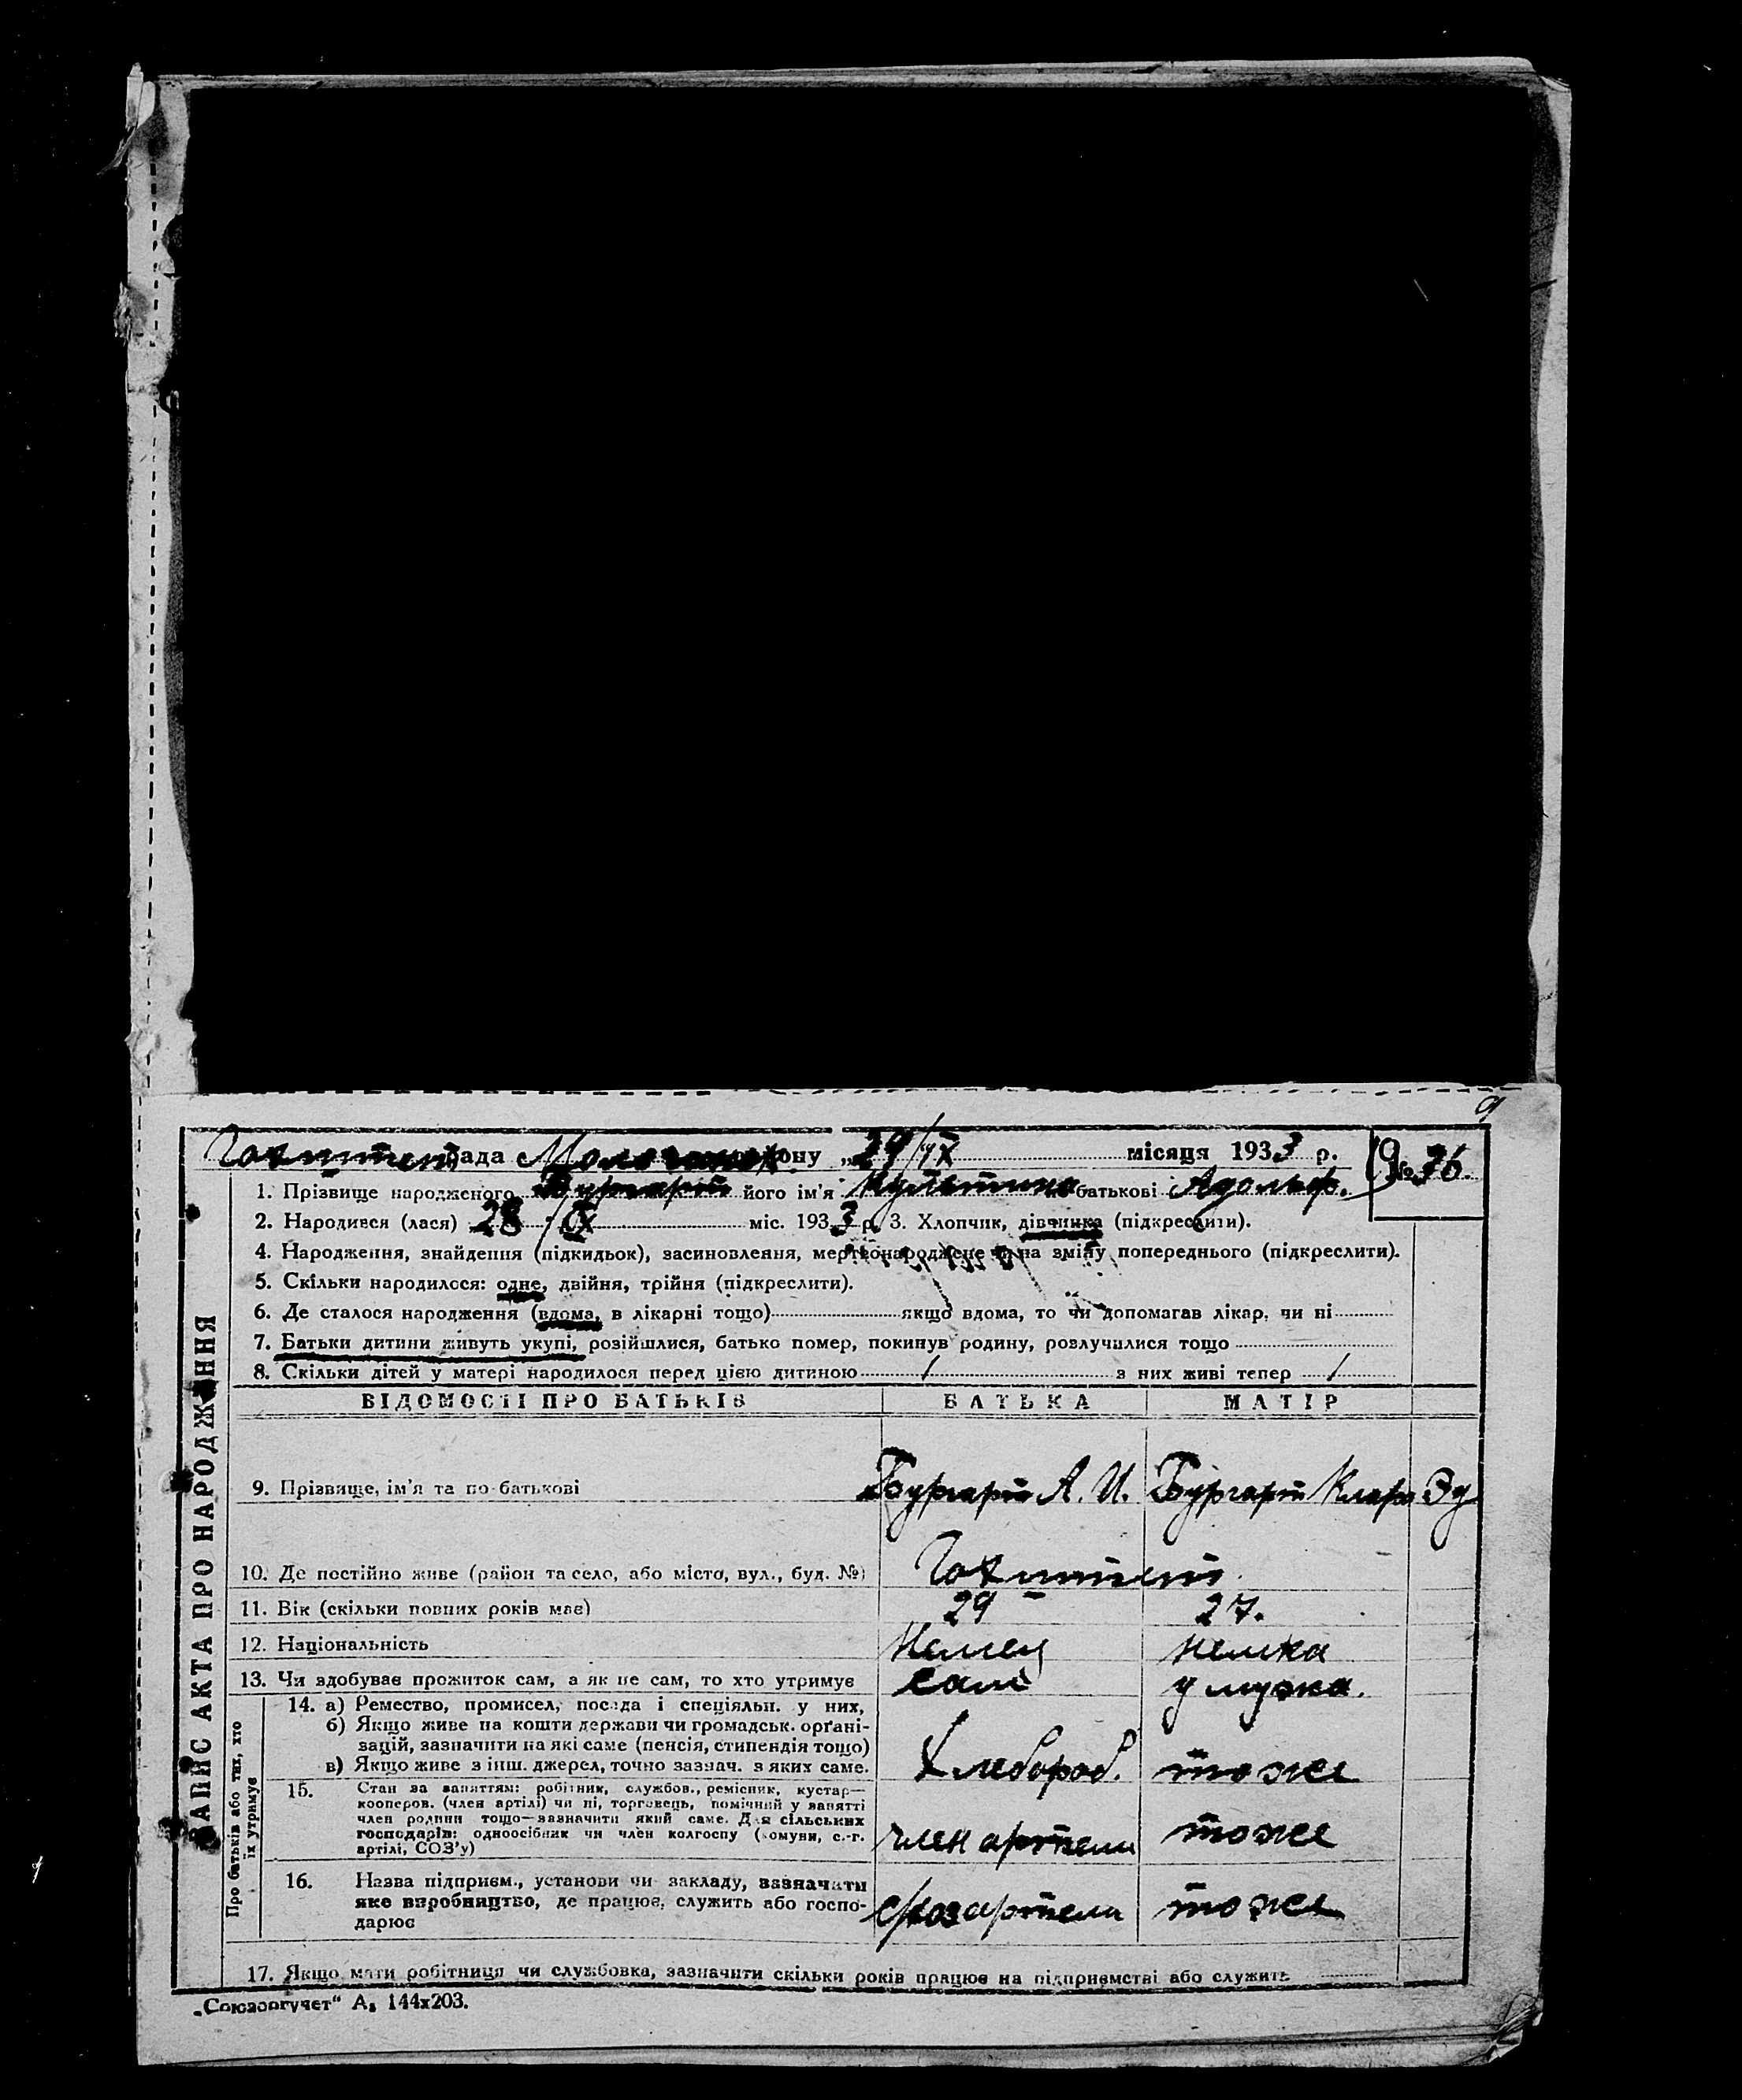 9
Гохштет рада Молочанск. району „29/IX місяця 1933 р. №36.
1. Прізвище народженого Бургарт його ім'я батькові Адольф.
2. Народився (лася) 28/IX міс. 1933 р. 3. Хлопчик, дівчинка (підкреслити).
4. Народження, знайдення (підкидьок), засиновлення, мертвонароджене чи на зміну попереднього (підкреслити).
5. Скільки народилося: одне, двійня, трійня (підкреслити).
6. Де сталося народження (вдома, в лікарні тощо) якщо вдома, то чи допомагав лікар, чи ні
7. Батьки дитини живуть укупі, розійшлися, батько помер, покинув родину, розлучилися тощо
8. Скільки дітей у матері народилося перед цією дитиною 1 з них живі тепер 1
ЗАПИС АКТА ПРО НАРОДЖЕННЯ
ВІДОМОСТІ ПРО БАТЬКІВ БАТЬКА МАТІР
9. Прізвище, ім'я та по-батькові Бургарт А. И. Бургарт Клара Эд
10. Де постійно живе (район та село, або місто, вул., буд. №) Гохштет
11. Вік (скільки повних років має) 29 27.
12. Національність Немец немка
13. Чи здобуває прожиток сам, а як не сам, то хто утримує сам у мужа.
Про батьків або тих, хто
їх утримує
14. а) Ремество, промисел, посада і спеціяльн. у них,
б) Якщо живе на кошти держави чи громадськ. органі-
зацій, зазначити на які саме (пенсія, стипендія тощо)
в) Якщо живе з інш. джерел, точно зазнач. з яких саме. Хлебороб. тоже
15. Стан за заняттям: робітник, службов., ремісник, кустар—
кооперов. (член артілі) чи ні, торговець, помічний у занятті
член родини тощо—зазначити який саме. Для сільських
господарів: одноосібник чи член колгоспу (комуни, с.-г.
артілі, СОЗ'у) член артели тоже
16. Назва підприєм., установи чи закладу, зазначати
яке виробництво, де працює, служить або госпо-
дарює с/хоз артели тоже
17. Якщо мати робітниця чи службовка, зазначити скільки років працює на підприємстві або служить
„Союзоргучет“ А₅ 144х203.